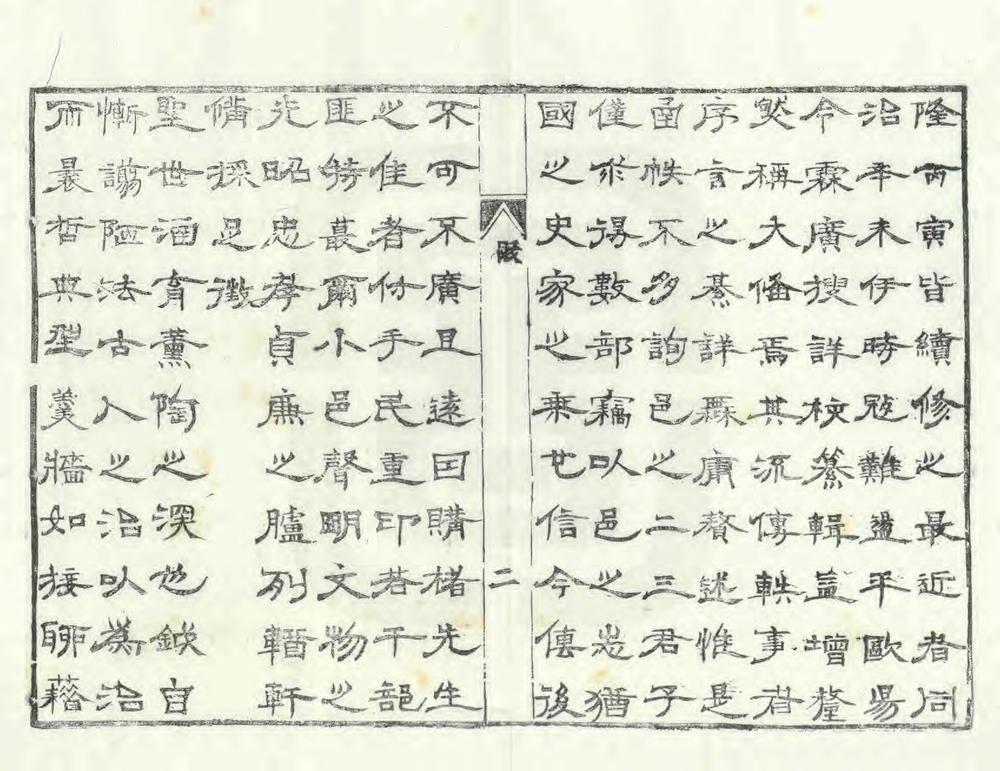 隆丙寅皆續修之最近者同
治辛未伊時難盪平歐昜
今霖廣搜詳校纂輯葢增釐
然稱大備焉其流傳軼事
序言之綦詳無庸贅述惟是
函帙不多詢邑之二三君子
僅得數部竊以邑之志猶
國之史家之乗也信今傳後
二
不可不廣且遠因購楮先生
之佳者付手民重印若干部
匪特蕞爾小邑聲明文物之
光昭忠孝貞廉之臚列輶軒
備採足徵
聖世涵育薰陶之深也鉞自
慚譾陋法古人之治以爲治
而曩哲典型羹牆如接聊藉